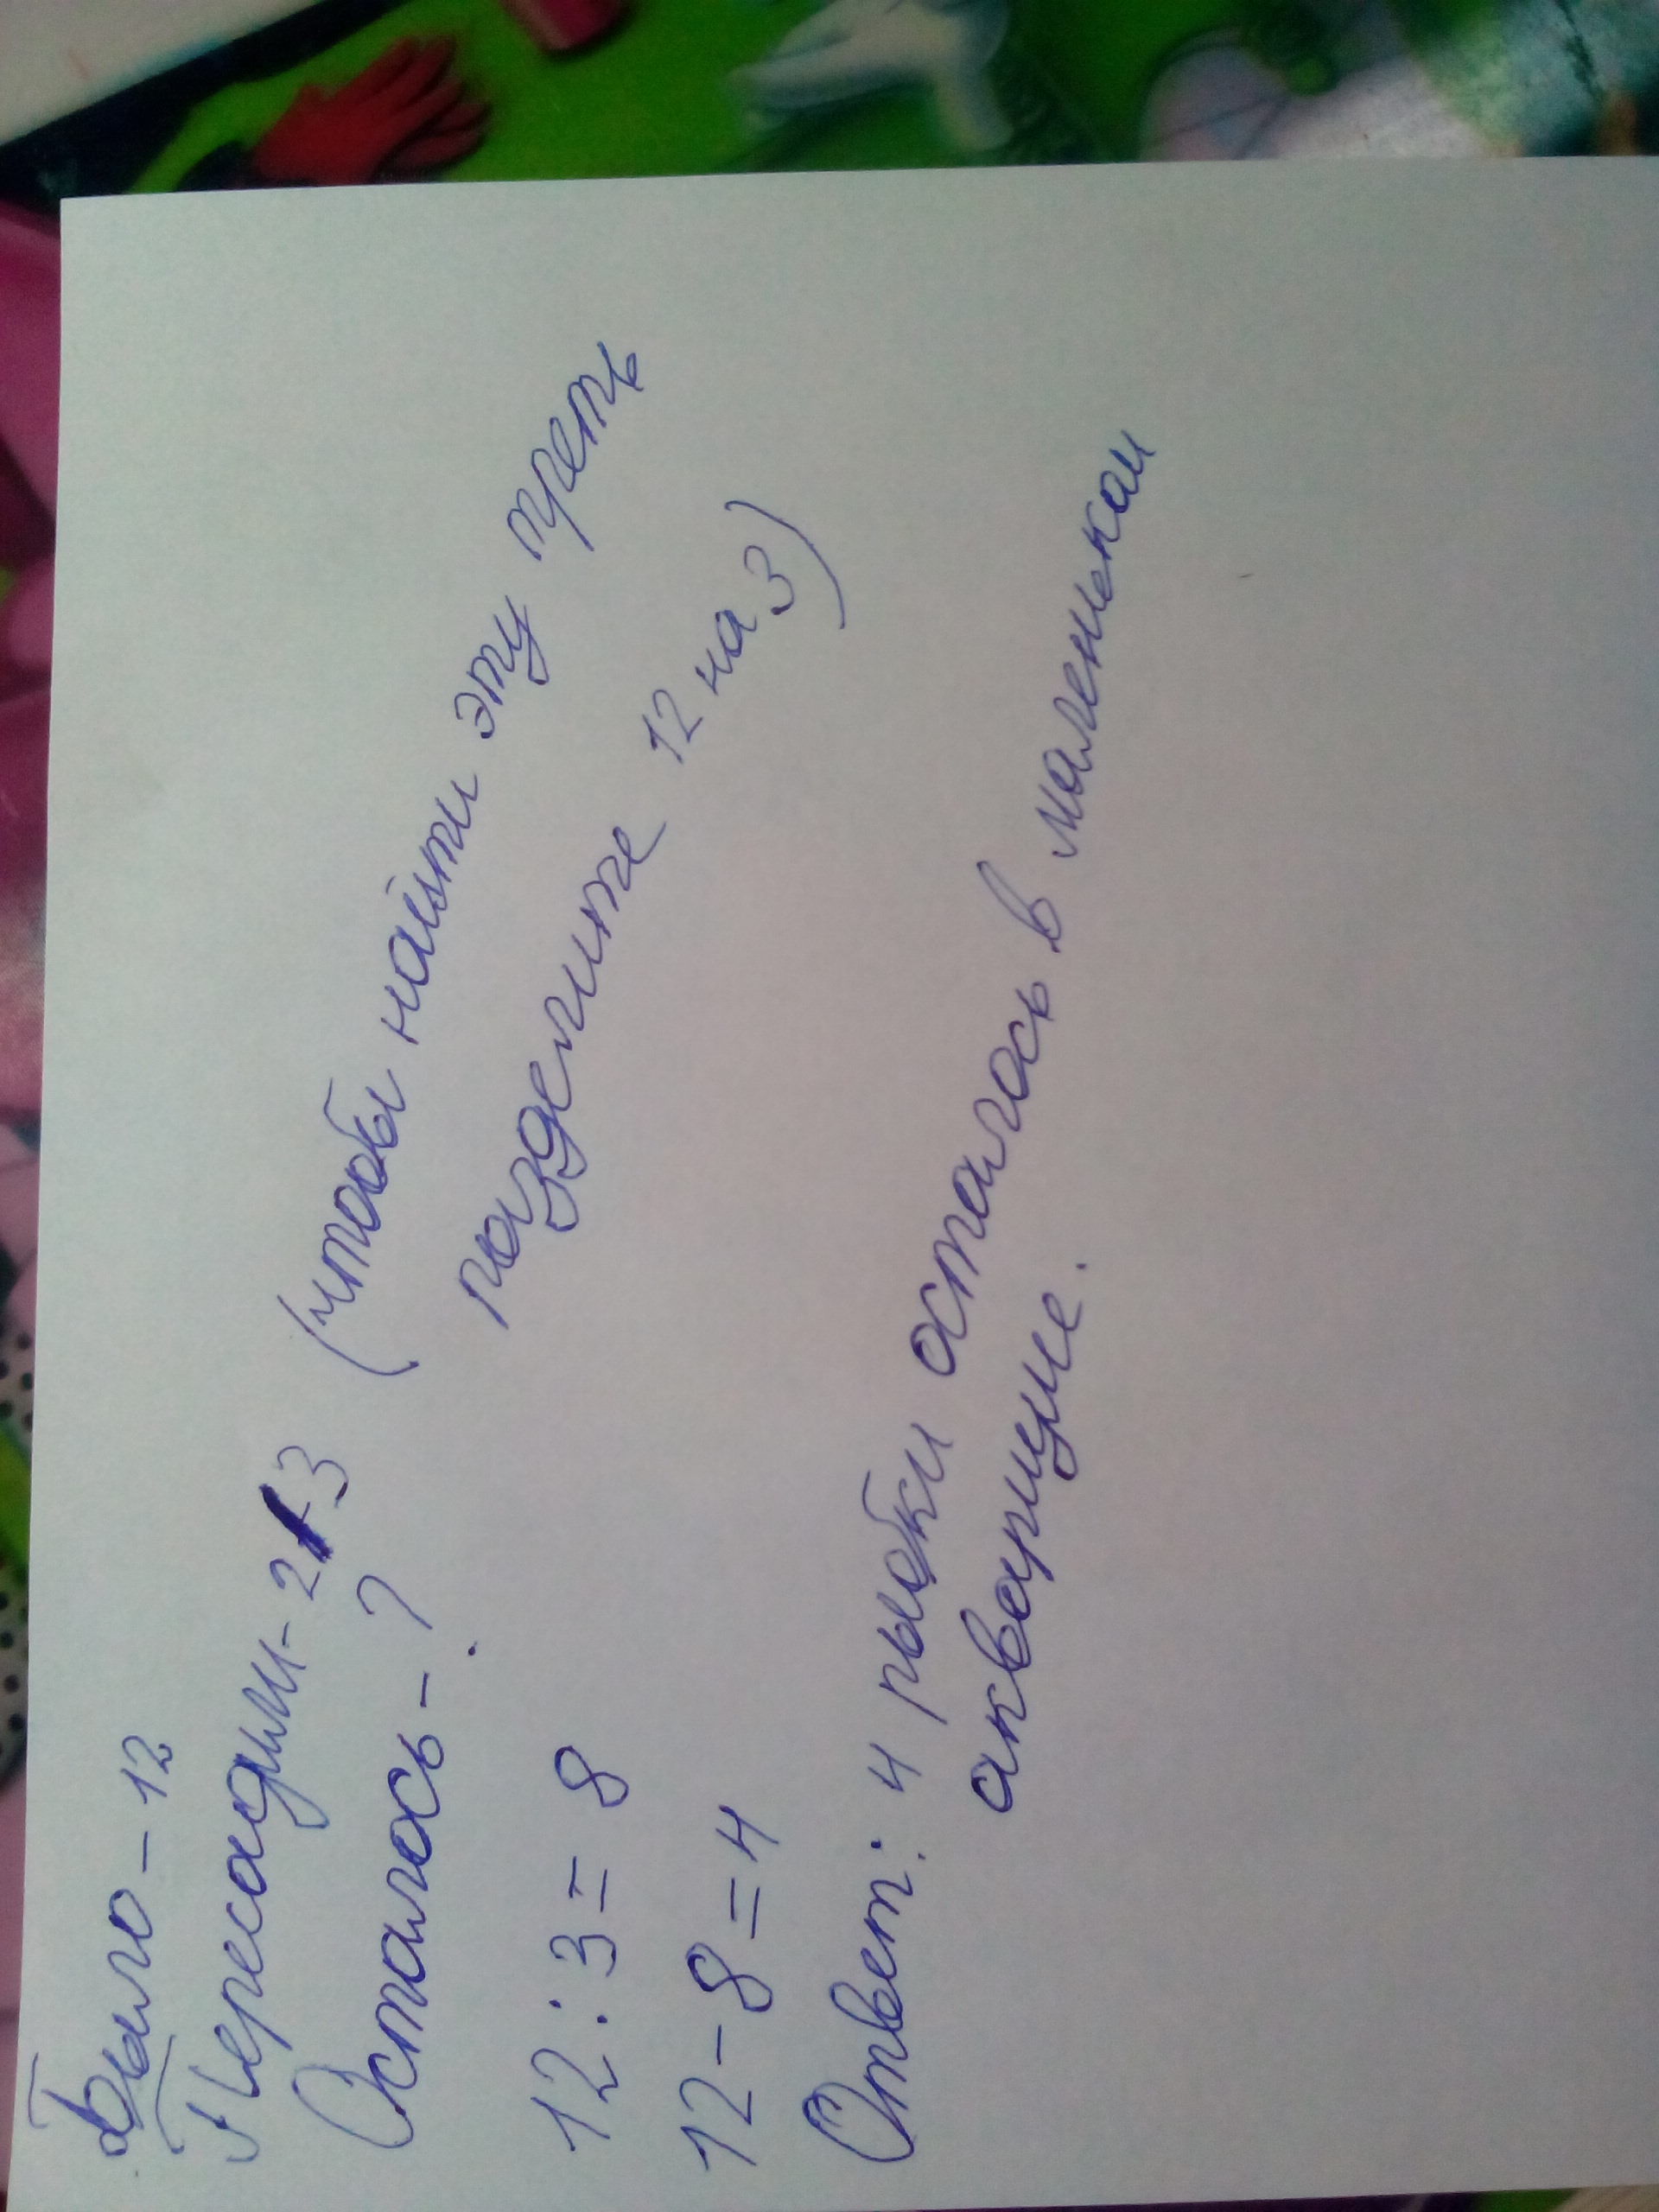 Было - 12
Пересадили - 2/3 (чтобы найти эту треть
позделите 12 на 3)
Осталось - ?
12 : 3 = 8
12 - 8 = 4
Ответ: 4 рыбки осталось в маленькам
аквариуме.